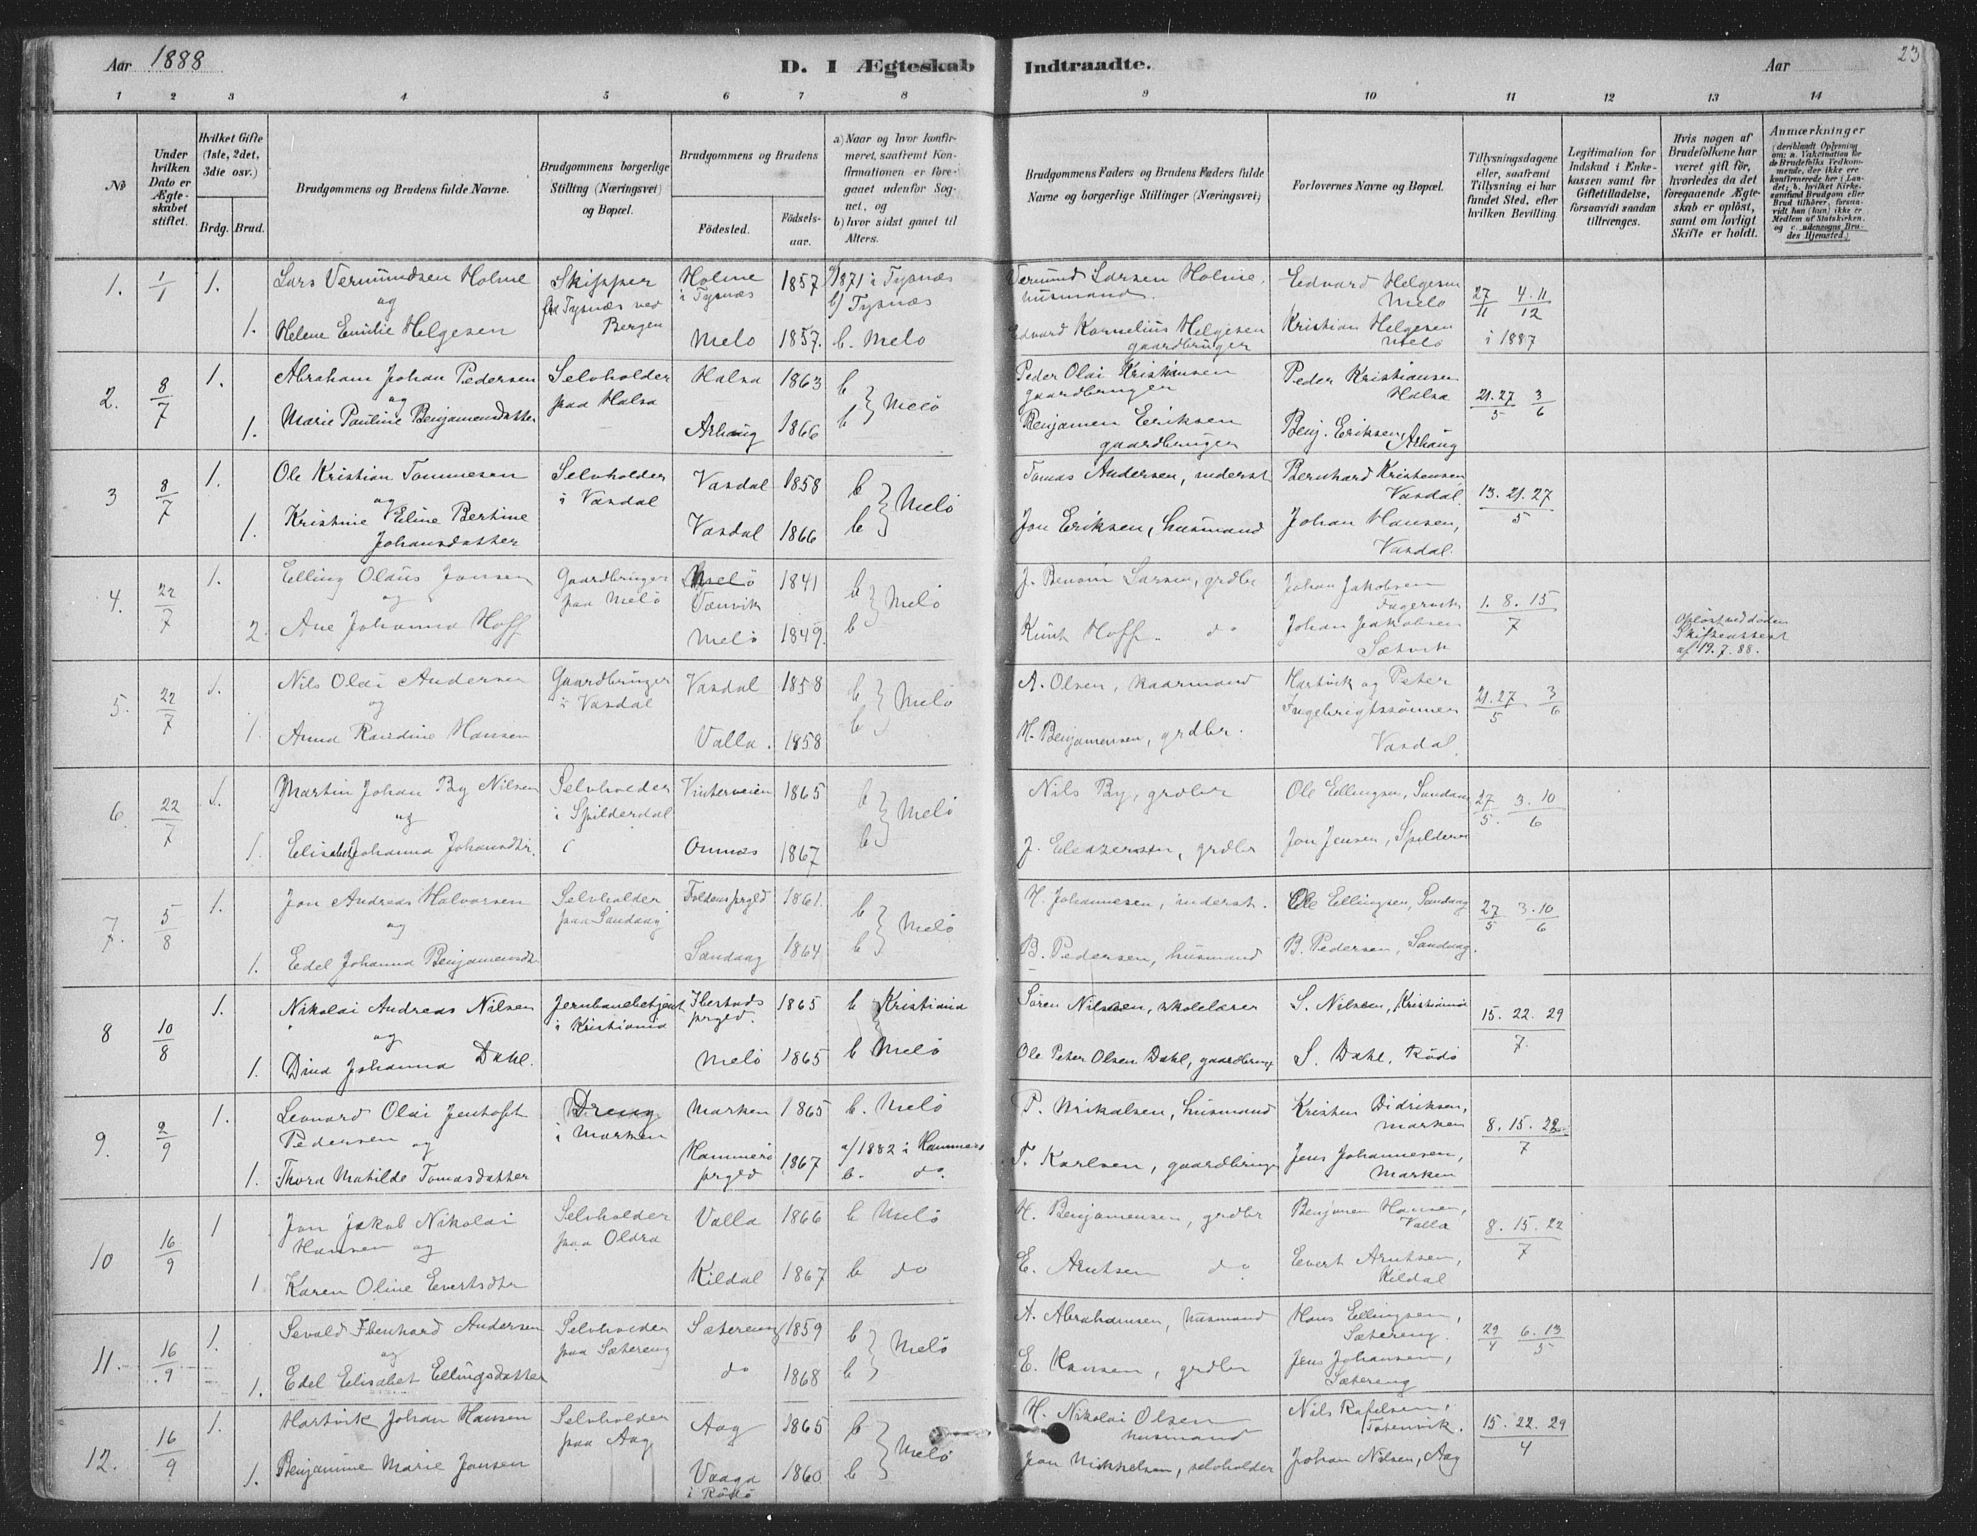 Aar 1888
D. I Ægteskab Indtraadte.
Aar
23
1 2 3 4 5 6 7 8 9 10 11 12 13 14
No
Under hvilken Dato er Ægte-skabet stiftet.
Hvilket Gifte (1ste, 2det, 3die osv.)
Brdg. Brud.
Brudgommens og Brudens fulde Navne.
Brudgommens borgerlige Stilling (Næringsvei) og Bopæl.
Brudgommens og Brudens
Fødested.
Fødsels-aar.
a) Naar og hvor konfir-meret, saafremt Kon-firmationen er fore-gaaet udenfor Sog-net, og
b) hvor sidst gaaet til Alters.
Brudgommens Faders og Brudens Faders fulde Navne og borgerlige Stillinger (Næringsvei)
Forlovernes Navne og Bopæl.
Tillysningsdagene eller, saafremt Tillysning ei har fundet Sted, efter hvilken Bevilling
Legitimation for Indskud i Enke-kassen samt for Giftetilladelse, forsaavidt saadan tiltrænges.
Hvis nogen af Brudefolkene har været gift før, hvorledes da det foregaaende Ægte-skab er opløst, samt om lovligt Skifte er holdt.
Anmærkninger
1. 1/1 1. Lars Vermundsen Holme Skipper Holme 1857 a/1871 i Tysnæs Vermund Larsen Holme, Edvard Helgesen
og fra Tysnæs ved i Tysnæs b/ Tysnæs husmand. Melø 27/11 4.11/12
1. Helene Emilie Helgesen Bergen Melø 1857. b. Melø Edvard Kornelius Helgesen Kristian Helgesen
gaardbruger Melø i 1887
2. 8/7 1. Abraham Johan Pedersen Selvholder Halsa 1863 b Peder Olai Kristiansen Peder Kristiansen
og paa Halsa } Melø gaardbruger Halsa 21.27/5 3/6
1. Marie Pauline Benjamensdatter Arhaug 1866 b Benjamen Eriksen Benj. Eriksen, Arhaug
gaardbruger
3 8/7 1. Ole Kristian Tommesen Selvholder Vasdal 1858 b Tomas Andersen, inderst Bernhard Kristensen
og i Vasdal } Melø Vasdal 13.21.27/5
1. Kristine Eline Bertine Vasdal 1866 b Jon Eriksen, husmand Johan Hansen,
Johansdatter Vasdal.
4. 22/7 1. Elling Olaus Jensen Gaardbruger Melø 1841 b J. Larsen, grdbr Johan Jakobsen
og paa Melø Tænvik } Melø Fagervik 1. 8. 15/7
2. Ane Johanna Hoff Melø 1849. b Knut Hoff. do Johan Jakobsen Opløst ved døden
Sætvik Skifteattest
af 19.7.88.
5. 22/7 1. Nils Olai Andersen Gaardbruger Vasdal 1858 b A. Olsen, Hartvik og Peter
og i Vasdal } Melø Ingebrigtssønner 21.27/5 3/6
1. Anna Randine Hansen Valla. 1858 b H. Benjamensen, grdbr. Vasdal.
6. 22/7 1. Martin Johan By Nilsen Selvholder Vinterveien 1865 b Nils By, grdbr Ole Ellingsen, Sandaag
og i Spilderdal } Melø 27/5. 3.10/6
1. Elisabet Johanna Johansdtr. Onnæs 1867 b J. Eleazersen, grdbr Jon Jensen,
7. 5/8 1. Jon Andreas Halvorsen Selvholder Foldens prgld 1861. b H. Johannesen, inderst. Ole Ellingsen, Sandaag
og paa Sandaag } Melø 27/5 3.10/6
1. Edel Johanna Benjamensdtr Sandaag 1864 b B. Pedersen, husmand B. Pedersen, Sandaag.
8 10/8 1. Nikolai Andreas Nilsen Jernbanebetjent Ibestads 1865 b Kristiania Søren Nilsen, skolelærer S. Nilsen, Kristiania
og i Kristiania prgld. 15. 22. 29/7.
1. Dina Johanna Dahl. Melø 1865 b Melø Ole Peter Olsen Dahl, gaardbruger S. Dahl, Rødø
9. 2/9 1. Leonard Olai Jentoft Dreng Marken 1865 b. Melø P. Mikalsen, husmand Kristen Didriksen,
Pedersen og i Marken Marken 8. 15. 22/7
1. Thora Matilde Tomasdatter Hammerø prgld 1867 a/1882 i Hammerø b. do. T. Karlsen, gaardbruger Jens Johannesen, Marken
10 16/9 1 Jon Jakob Nikolai Selvholder Valla 1866 b Melø H. Benjamensen, grdbr Benjamen Hansen,
Hansen og paa Oldra Valla 8. 15. 22/7
1. Karen Oline Evertsdtr Kildal 1867 b do E. Arntsen do Evert Arntsen, Kildal
11. 16/9 1. Sevald Ebenhard Andersen Selvholder Sætereng 1859 b A. Abrahamsen, husmand Hans Ellingsen,
og paa Sætereng } Melø Sætereng. 29/4 6.13/5
1. Edel Elisabet Ellingsdatter do 1868 b E. Hansen, grdbr Jens Johansen, Sætereng
12. 16/9 1. Hartvik Johan Hansen Selvholder Aag 1865 b H. Nikolai Olsen Nils Rafelsen,
paa Aag } Melø husmand 15. 22. 29/4
1. Benjamine Marie Jonsen Vaaga 1860 b Jon Mikkelsen, selvholder Johan Nilsen, Aag
i Rødø